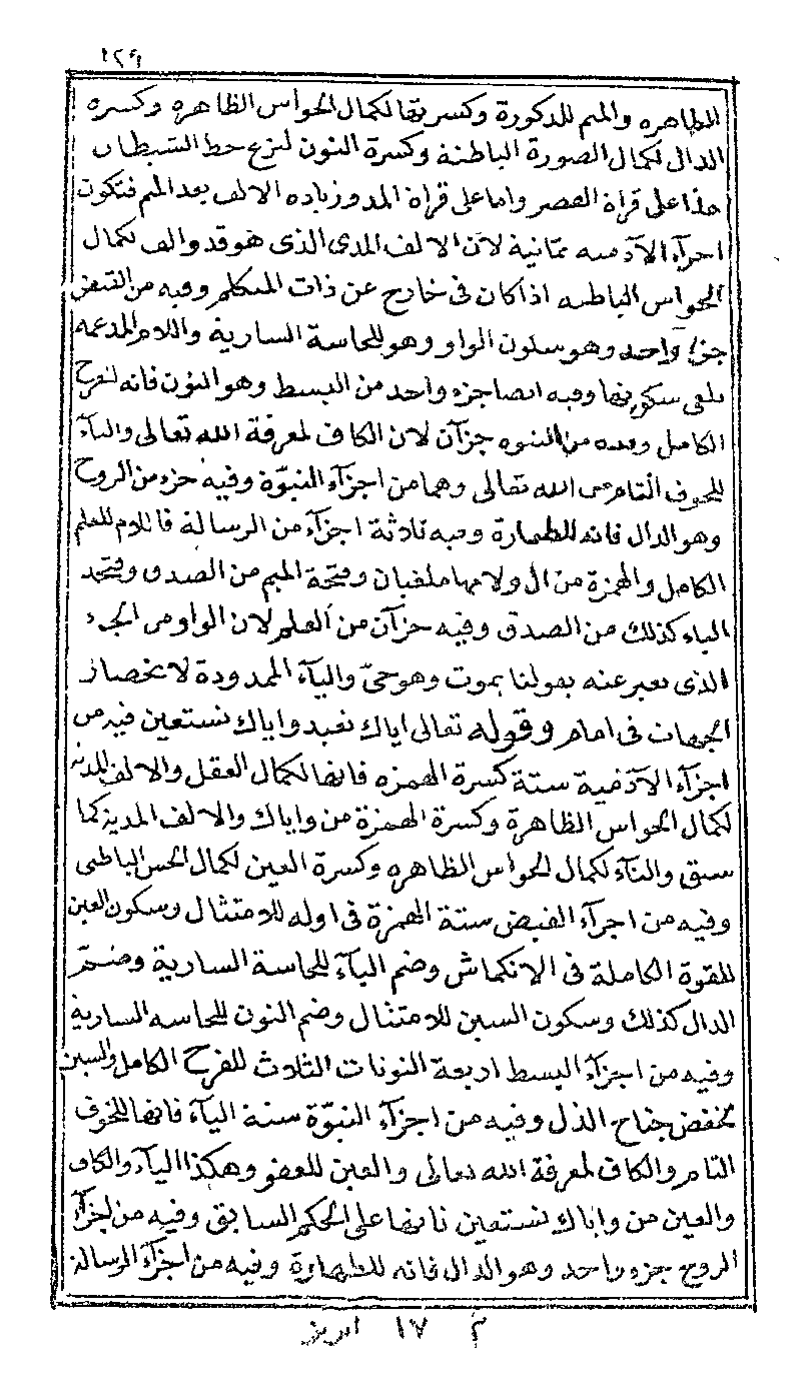 ١٢٩
الظاهره والميم للذكورة وكسرتها لكمال الحواس الظاهره وكسره
الدال لكمال الصورة الباطنة وكسرة النون لنزع حظ الشيطان
هذا على قراة القصر واما على قراة المد وزياده الالف بعد الميم فتكون
اجزآء الآدميه ثمانية لآن الالف المدى الذى هو قد والف لكمال
الحواس الباطنه اذا كان فى خارج عن ذات المتكلم وفيه من القبض
جزؤ واحد وهو سكون الواو وهو للحاسة السارية واللام المدغمه
يلغى سكونها وفيه ايضا جزء واحد من البسط وهو النون فانه لفرح
الكامل وفيه من النبوه جزآن لان الكاف لمعرفة الله تعالى واليآء
للخوف التام من الله تعالى وهما من اجزآء النبوّة وفيه جزء من الروح
وهو الدال فانه للطهارة وفيه ثلاثة اجزآء من الرسالة فاللام للعلم
الكامل والهمزة من ال ولامها ملغيان وفتحة الميم من الصدق وفتحة
الياء كذلك من الصدق وفيه جزآن من العلم لان الواو من الجزء
الذى يعبر عنه بقولنا يموت وهو حىّ واليآء الممدودة لانحصار
الجهات فى امام وقوله تعالى اياك نعبد واياك نستعين فيه من
اجزآء الآدمية ستة كسرة الهمزه فانها لكمال العقل والالف المدية
لكمال الحواس الظاهرة وكسرة الهمزة من واياك والالف المدية كما
سبق والتآء لكمال الحواس الظاهره وكسرة العين لكمال الحس الباطنى
وفيه من اجزآء القبض ستة الهمزة فى اوله للامتثال وسكون العين
للقوة الكاملة فى الانكماش وضم البآء للحاسة السارية وضم
الدال كذلك وسكون السين للامتثال وضم النون للحاسه السارية
وفيه من اجزآء البسط اربعة النونات الثلاث للفرح الكامل والسين
لخفض جناح الذل وفيه من اجزآء النبوّة ستة اليآء فانها للخوف
التام والكاف لمعرفة الله تعالى والعين للعفو وهكذا اليآء والكاف
والعين من واياك نستعين فانها على الحكم السابق وفيه من اجزآء
الروح جزء واحد وهو الدال فانه للطهارة وفيه من اجزآء الرسالة
م ١٧ ابريز